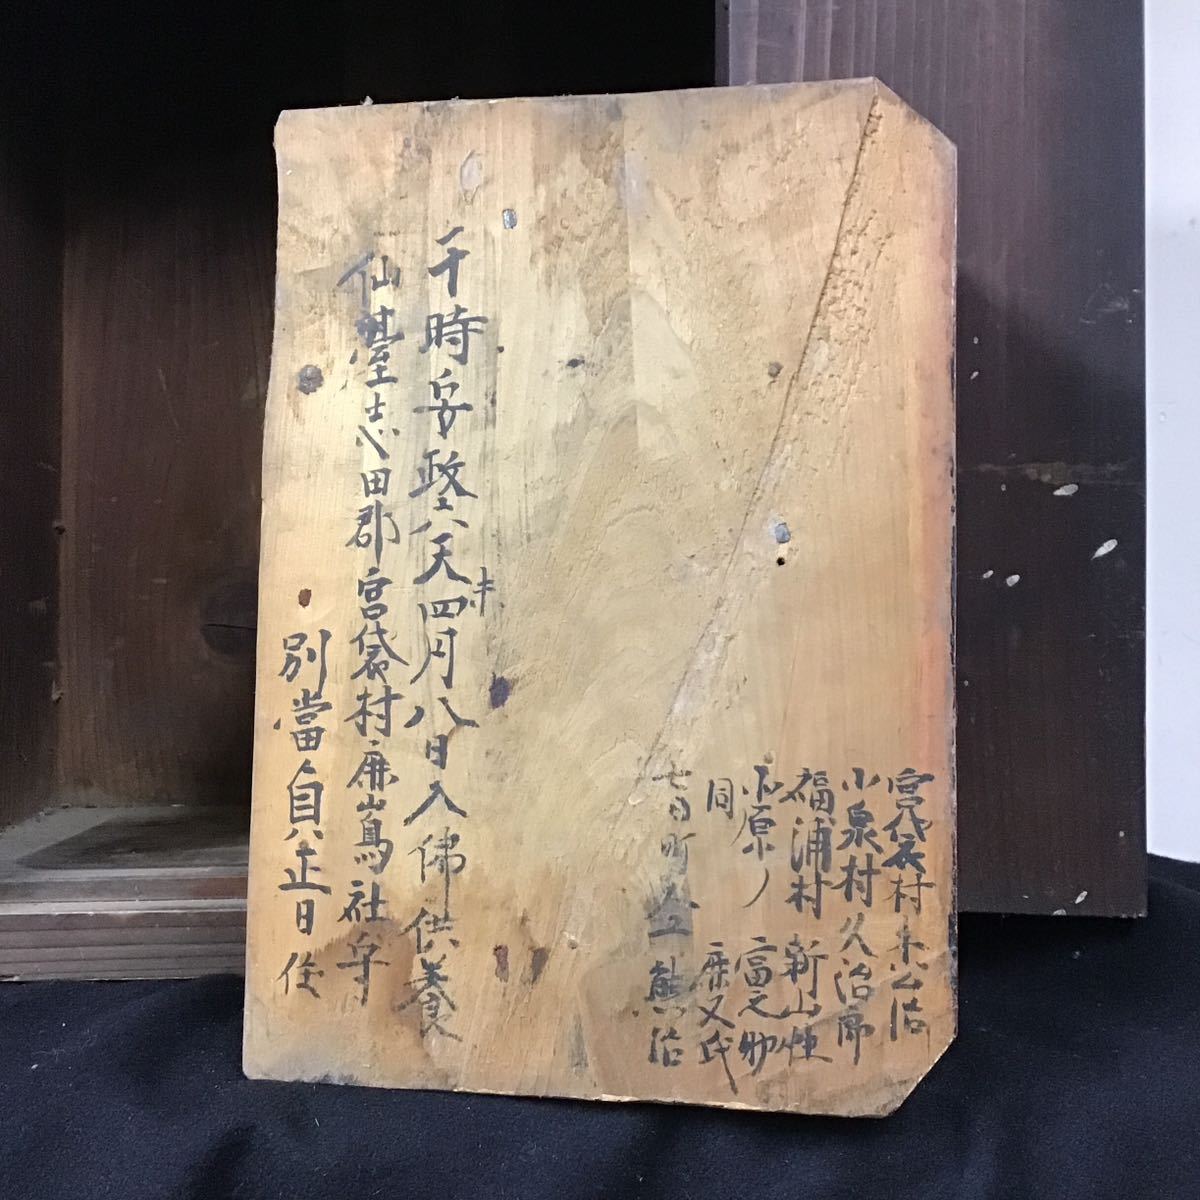 宮袋村 公治
小泉村久治郎
福浦村 新山
原ノ 富之助
同 又
七日町 熊治
干時安政六天未四月八日入佛供養
仙臺志田郡宮袋村鹿嶌社
別當貞正日住